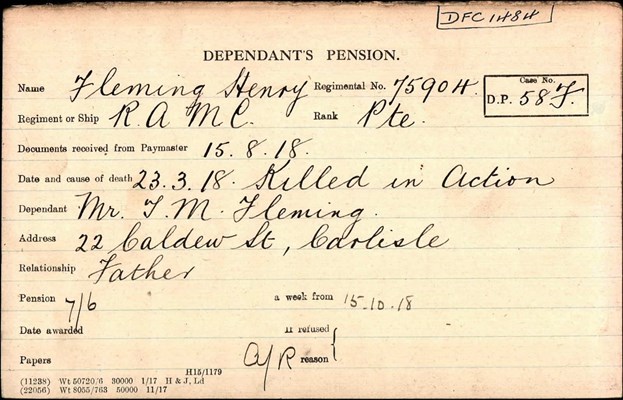 DFC 1484
DEPENDANT'S PENSION.
Name Fleming Henry Regimental No. 75904.
Case No.
D.P. 58F.
Regiment or Ship R.A.M.C. Rank Pte.
Documents received from Paymaster 15.8.18.
Date and cause of death 23.3.18. Killed in Action
Dependant Mr. T. M. Fleming.
Address 22 Caldew St, Carlisle
Relationship Father
Pension 7/6 a week from 15.10.18
Date awarded If refused
Papers reason {
H15/1179
(11238) Wt 50720/6 30000 1/17 H & J, Ld
(22056) Wt 8055/763 50000 11/17